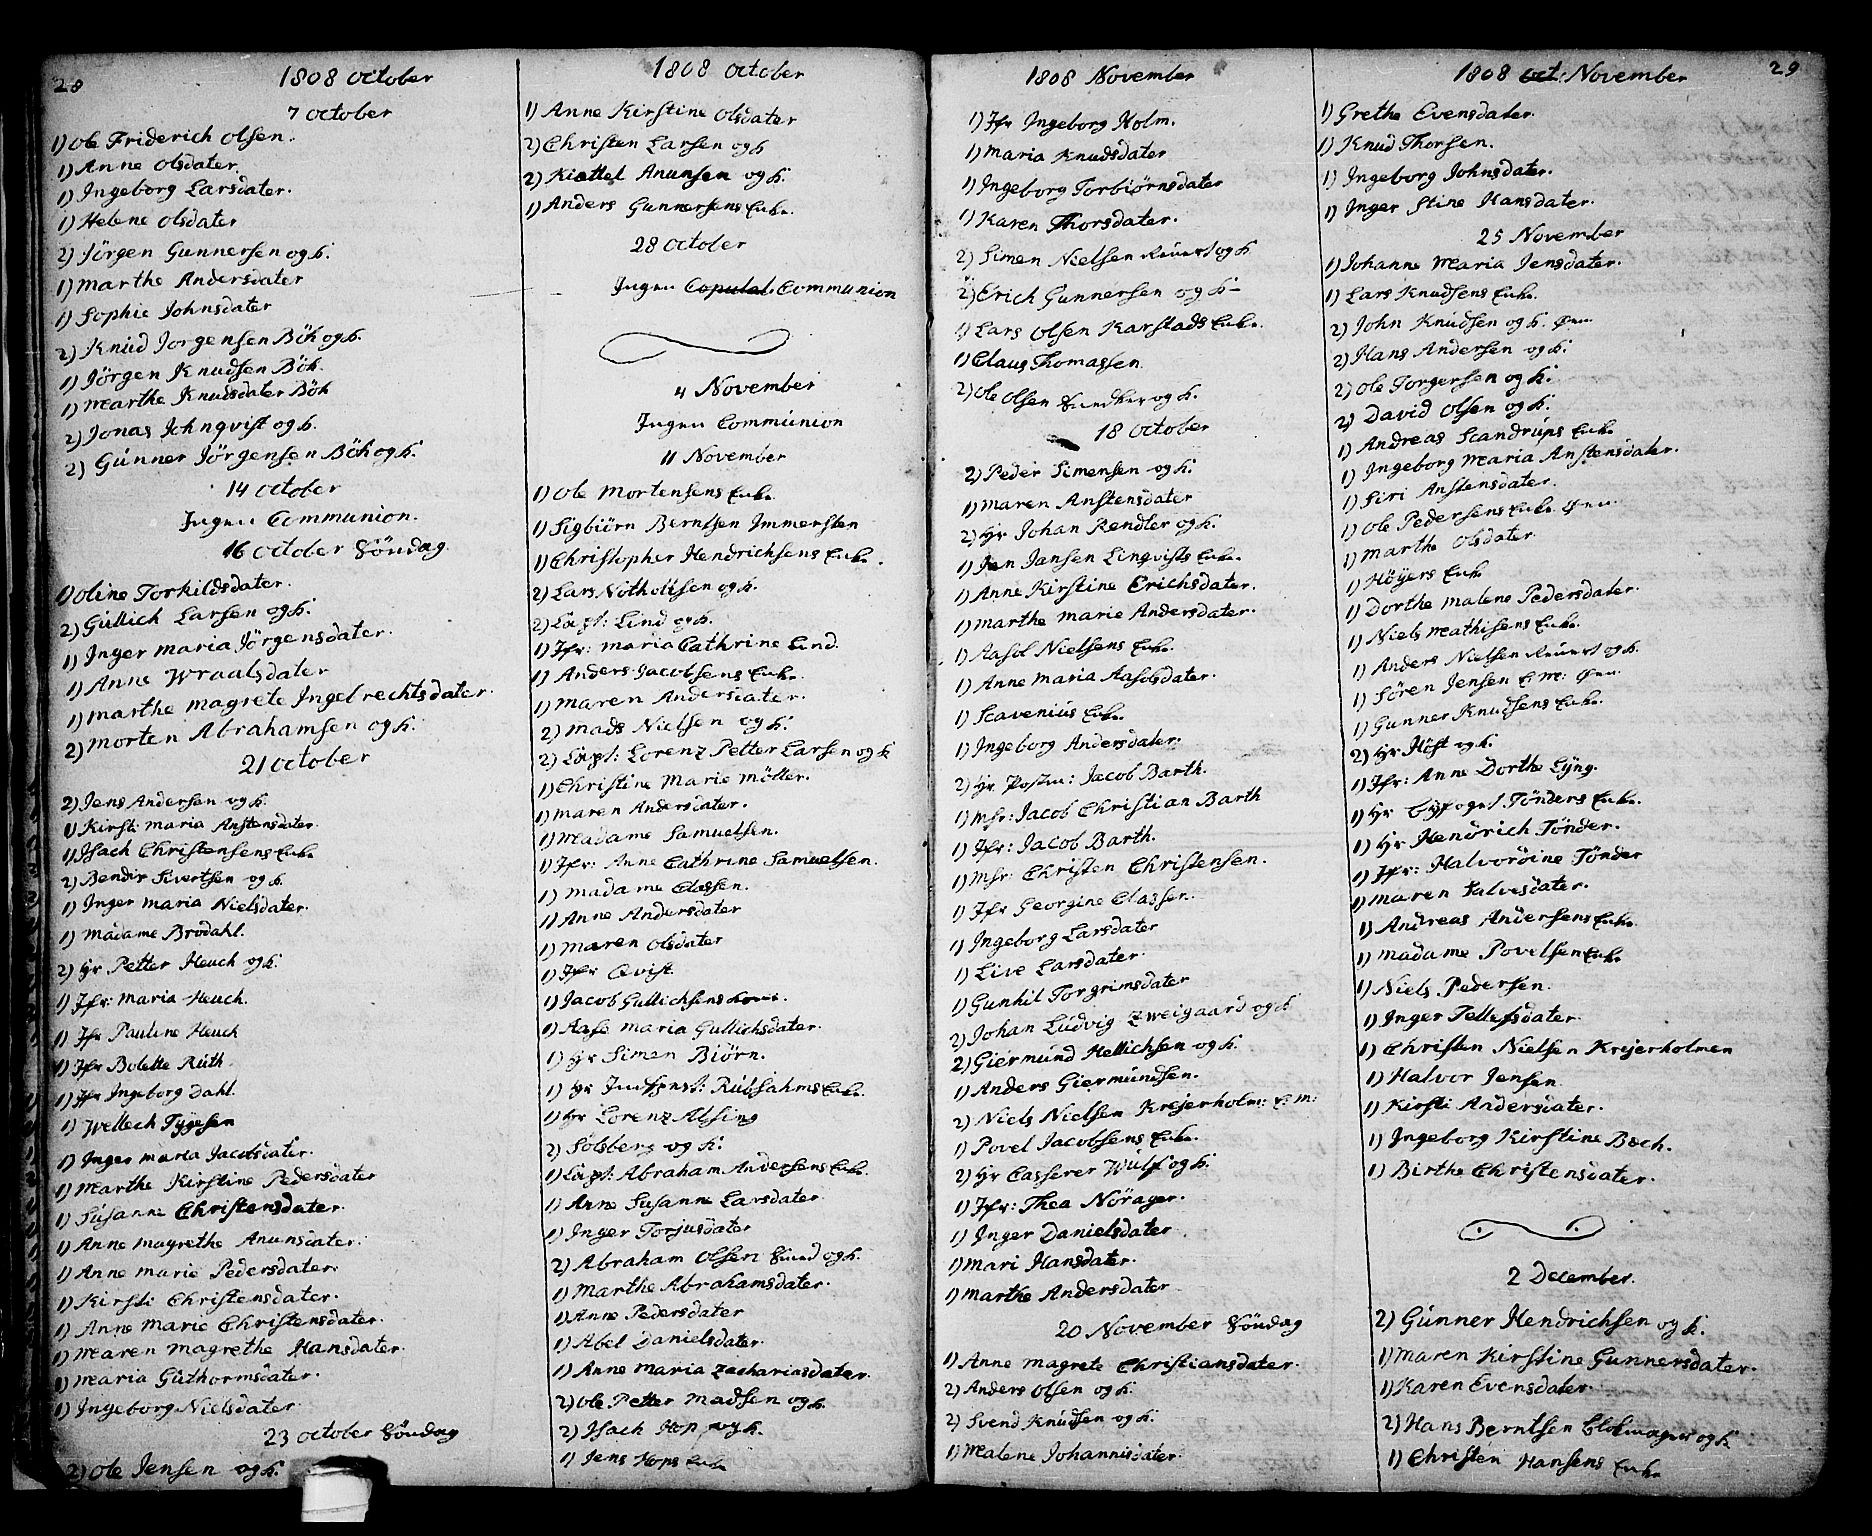 28
1808 October
7 October
1) Ole Friderich Olsen.
1) Anne Olsdater.
1) Ingeborg Larsdater.
1) Helene Olsdater
2) Jörgen Gunnersen og k.
1) Marthe Andersdater
1) Sophie Johnsdater
2) Knud Jorgensen Bök og k.
1) Jörgen Knudsen Bök.
1) Marthe Knudsdater Bök
2) Jonas Johnqvist og k.
2) Gunner Jörgensen Bök og k.
14 October
Ingen Communion.
16 October Söndag
1) Oline Torkildsdater.
2) Gullich Larsen og k.
1) Inger Maria Jörgensdater.
1) Anne Wraalsdater
1) Marthe Magrete Ingelrechtsdater.
2) Morten Abrahamsen og k.
21 October
2) Jens Andersen og k.
1) Kirsti Maria Anstensdater.
1) Isach Christensens Enke
2) Bendir Sivertsen og k.
1) Inger Maria Nielsdater.
1) Madame Brodahl.
2) Hr Petter Heuch og k.
1) Jfr: Maria Heuch.
1) Jfr Pauline Heuch
1) Jfr Bolette Ruth.
1) Jfr Ingeborg Dahl.
1) Wellech Tygesen
1) Inger Maria Jacobsdater.
1) Marthe Kirstine Pedersdater
1) Susanne Christensdater.
1) Anne Magrethe Anunsdater.
1) Anne Marie Pedersdater.
1) Kirsti Christensdater.
1) Anne Marie Christensdater.
1) Maren Magrethe Hansdater.
1) Maria Guthormsdater.
1) Ingeborg Nielsdater
23 October Söndag
2) Ole Jensen og k.
1808 October
1) Anne Kirstine Olsdater
2) Christen Larsen og k
2) Kiettel Anunsen og k.
1) Anders Gunnersens Enke.
28 October
Ingen Copulat. Communion
4 November
Ingen Communion
11 November
1) Ole Mortensens Enke
1) Sigbiörn Berntsen Immersten
1) Christopher Hendrichsens Enke.
2) Lars Notholtsen og k.
2) Capt: Lind og k.
1) Jfr: Maria Cathrine Lind.
1) Anders Jacobsens Enke.
1) Maren Andersdater.
2) Mads Nielsen og k.
2) Capt: Lorenz Petter Larsen og k
1) Christine Marie Möller.
1) Maren Andersdater.
1) Madame Samuelsen.
1) Jfr: Anne Cathrine Samuelsen.
1) Madame Classen.
1) Anne Andersdater
1) Maren Olsdater
1) Jfr Qvist
1) Jacob Gullichsens Kone.
1) Aase Maria Gullichsdater.
1) Hr Simon Biörn.
1) Hr Rubsahms Enke.
1) Hr Lorenz Absing
2) Solsberg og k.
1) Capt: Abraham Andersens Enke.
1) Anne Susanne Larsdater
1) Inger Torjusdater
2) Abraham Olsen Sund og k.
1) Marthe Abrahamsdater.
1) Anne Pedersdater
1) Abel Danielsdater.
1) Anne Maria Zachariasdater.
2) Ole Petter Madsen og k.
2) Isach Hop og k.
1) Jens Hops Enke
1808 November
1) Jfr Ingeborg Holm.
1) Maria Knudsdater
1) Ingeborg Torbiörnsdater
1) Karen Thorsdater.
2) Simen Nielsen og k
2) Erich Gunnersen og k
1) Lars Olsen Karstads Enke.
1) Claus Thomassen
2) Ole Olsen og k.
18 October
2) Peder Simensen og k.
1) Maren Anstensdater
2) Hr Johan Rendler og k.
1) Jan Jansen Linqvists Enke.
1) Anne Kirstine Erichsdater.
1) Marthe Marie Andersdater.
1) Aasol Nielsens Enke.
1) Anne Maria Aasolsdater.
1) Scavenius Enke.
1) Ingeborg Andersdater.
2) Hr Postm: Jacob Barth.
1) Msr: Jacob Christian Barth
1) Jfr: Jacob Barth.
1) Msr: Christen Christensen.
1) Jfr Georgine Classen.
1) Ingeborg Larsdater
1) Live Larsdater.
1) Gunhil Torgrimsdater
2) Johan Ludvig Zweigaard og k
2) Giermund Hellichsen og k.
1) Anders Giermundsen.
2) Niels Nielsen Krejerholm: E M:
1) Povel Jacobsens Enke.
2) Hr Casserer Wulf og k.
1) Jfr: Thea Nörager.
1) Inger Danielsdater
1) Mari Hansdater.
1) Marthe Andersdater
20 November Söndag
1) Anne Magrete Christiansdater.
2) Anders Olsen og k.
2) Svend Knudsen og k.
1) Malene Johannisdater.
1808 Oct. November
29
1) Grethe Evensdater.
1) Knud Thorsen.
1) Ingeborg Johnsdater.
1) Inger Stine Hansdater.
25 November
1) Johanne Maria Jensdater.
1) Lars Knudsens Enke.
2) John Knudsen og k.
2) Hans Andersen og k.
2) Ole Torgersen og k.
2) David Olsen og k.
1) Andreas Scandrups Enke
1) Ingeborg Maria Anstensdater.
1) Siri Anstensdater.
1) Ole Pedersens Enke.
1) Marthe Olsdater
1) Höyers Enke
1) Dorthe Malene Pedersdater.
1) Niels Mathisens Enke.
1) Anders Nielsen og k.
1) Sören Jensen E M:
1) Gunner Knudsens Enke.
2) Hr Höst og k.
1) Jfr: Anne Dorthe Lyng.
1) Hr Tönders Enke.
1) Hr Hendrich Tönder.
1) Jfr: Halvordine Tönder
1) Maren Halvesdater.
1) Andreas Andersens Enke.
1) Madame Povelsen Enke.
1) Niels Pedersen.
1) Inger Tellefsdater
1) Christen Nielsen Krejerholmen
1) Halvor Jensen
1) Kirsti Andersdater.
1) Ingeborg Kirstine Bach.
1) Birthe Christensdater.
2 December.
2) Gunner Hendrichsen og k.
1) Maren Kirstine Gunnersdater.
1) Karen Evensdater.
2) Hans Berntsen og k
1) Christen Hansens Enke